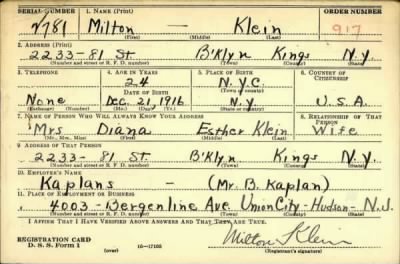 SERIAL NUMBER 1. NAME (Print) ORDER NUMBER
781 Milton — Klein 917
(First) (Middle) (Last)
2. ADDRESS (Print)
2233-81 St. B'Klyn Kings N.Y.
(Number and street or R. F. D. number) (Town) (County) (State)
3. TELEPHONE 4. AGE IN YEARS 5. PLACE OF BIRTH 6. COUNTRY OF CITIZENSHIP
24 N.Y.C.
DATE OF BIRTH (Town or county)
None Dec. 21, 1916 N.Y. U.S.A.
(Exchange) (Number) (Mo.) (Day) (Yr.) (State or country)
7. NAME OF PERSON WHO WILL ALWAYS KNOW YOUR ADDRESS 8. RELATIONSHIP OF THAT PERSON
Mrs Diana Esther Klein Wife
(Mr., Mrs., Miss) (First) (Middle) (Last)
9. ADDRESS OF THAT PERSON
2233-81 St. B'Klyn Kings N.Y.
(Number and street or R. F. D. number) (Town) (County) (State)
10. EMPLOYER'S NAME
Kaplans — (Mr. B. Kaplan)
11. PLACE OF EMPLOYMENT OR BUSINESS
4003-Bergenline Ave. Union City-Hudson-N.J.
(Number and street or R. F. D. number) (Town) (County) (State)
I AFFIRM THAT I HAVE VERIFIED ABOVE ANSWERS AND THAT THEY ARE TRUE.
REGISTRATION CARD
D. S. S. Form 1 (over) 16-17105 Milton Klein
(Registrant's signature)